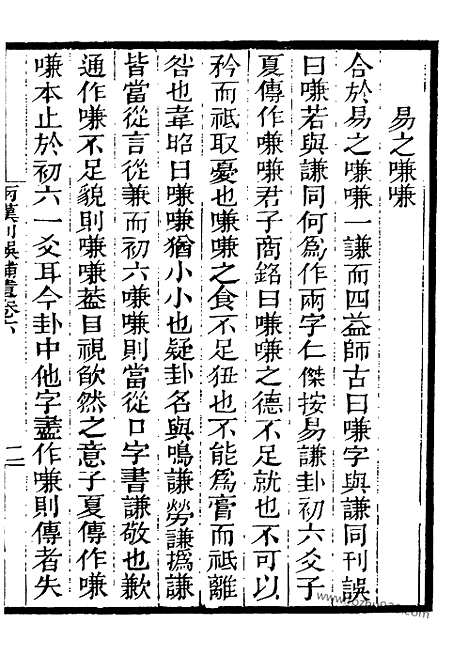 易之嗛嗛
合於易之嗛嗛一謙而四益師古曰嗛字與謙同刊誤
曰嗛若與謙同何爲作兩字仁傑按易謙卦初六爻子
夏傳作嗛嗛君子商銘曰嗛嗛之德不足就也不可以
矜而祗取憂也嗛嗛之食不足狃也不能爲膏而祗離
咎也韋昭曰嗛嗛猶小小也疑卦名與鳴謙勞謙撝謙
皆當從言從兼而初六嗛嗛則當從口字書謙敬也歉
通作嗛不足貌則嗛嗛葢目視欿然之意子夏傳作嗛
嗛本止於初六一爻耳今卦中他字盡作嗛則傳者失
兩漢刊誤補遺卷六
二